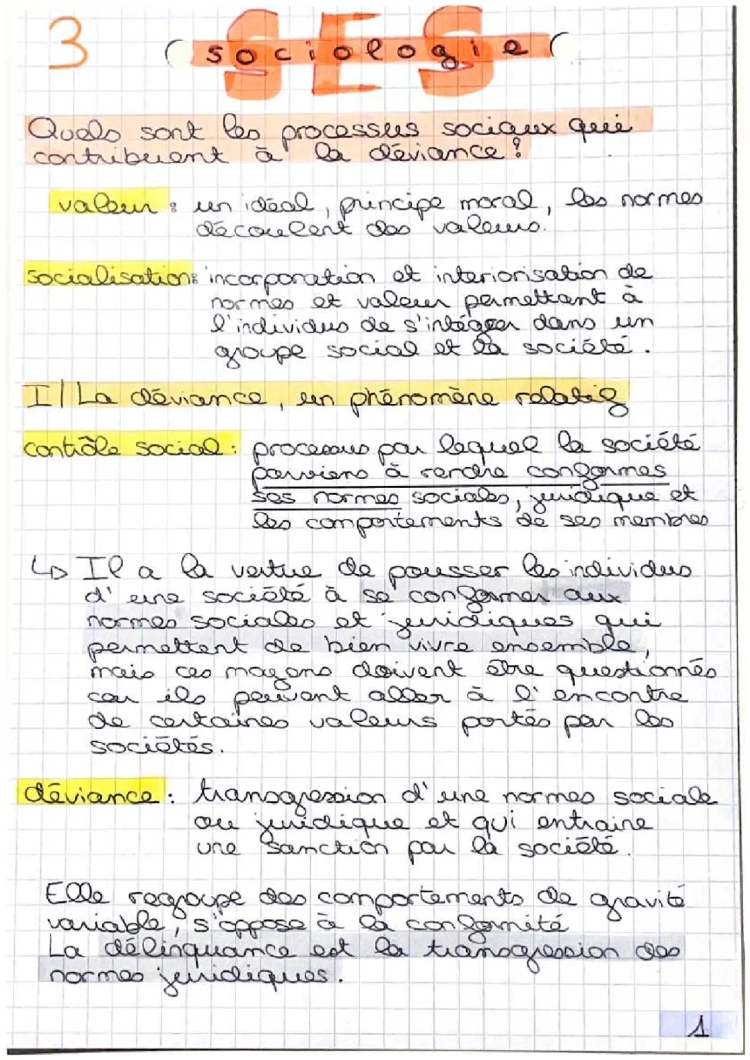 3
SES
(sociologie(
Quels sont les processus sociaux qui
contribuent à la déviance?
valeur : un idéal, principe moral, les normes
découlent des valeurs.
socialisation: incorporation et interiorisation de
normes et valeur permettant à
l'individus de s'intégrer dans un
groupe social et la société.
I/ La déviance, un phénomène relatif
contrôle social : processus par lequel la société
parviens à rendre conformes
ses normes sociales, juridique et
les comportements de ses membres
↳ Il a la vertue de pousser les individus
d'une société à se conformer aux
normes sociales et juridiques qui
permettent de bien vivre ensemble,
mais ces moyens doivent être questionnés
car ils peuvent aller à l'encontre
de certaines valeurs portés par les
sociétés.
déviance : transgression d'une normes sociale
ou juridique et qui entraine
une sanction par la société.
Elle regroupe des comportements de gravité
variable, s'oppose à la conformité
La délinquance est la transgression des
normes juridiques.
1